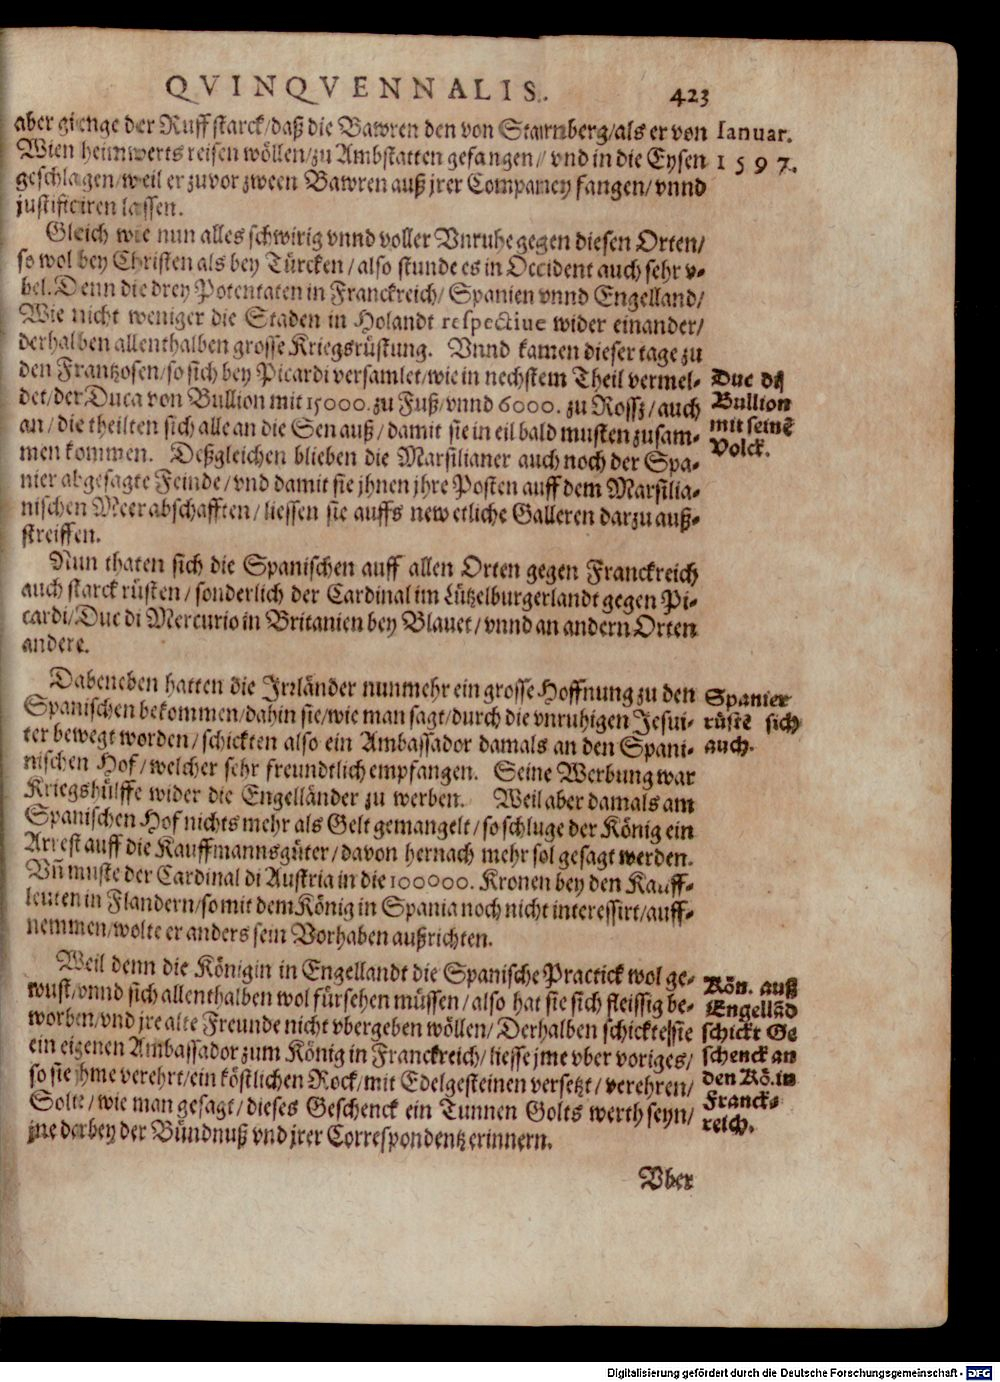 QVINQVENNALIS. 423
aber gienge der Ruff starck/daß die Bawren den von Starnberg/als er von
Wien heimwerts reisen wöllen/zu Ambstatten gefangen/ vnd in die Eysen
geschlagen/weil er zuvor zween Bawren auß jrer Compamey fangen/vnnd
justificiren lassen.
Ianuar.
1597.
Gleich wie nun alles schwirig vnnd voller Vnruhe gegen diesen Orten/
so wol bey Christen als bey Türcken/also stunde es in Occident auch sehr v-
bel. Denn die drey Potentaten in Franckreich/ Spanien vnnd Engelland/
Wie nicht weniger die Staden in Holandt respectiue wider einander/
derhalben allenthalben grosse Kriegsrüstung. Vnnd kamen dieser tage zu
den Frantzosen/so sich bey Picardi versamlet/wie in nechstem Theil vermel-
det/der Duca von Bullion mit 15000. zu Fuß/vnnd 6000. zu Rossz/auch
an/die theilten sich alle an die Sen auß/damit sie in eil bald musten zusam-
men kommen. Deßgleichen blieben die Marsilianer auch noch der Spa-
nier abgesagte Feinde/vnd damit sie jhnen jhre Posten auff dem Marsilia-
nischen Meer abschafften/liessen sie auffs new etliche Galleren darzu auß-
streiffen.
Duc di
Bullion
mit seinē
Volck.
Nun thaten sich die Spanischen auff allen Orten gegen Franckreich
auch starck rüsten/sonderlich der Cardinal im Lützelburgerlandt gegen Pi-
cardi/Duc di Mercurio in Britanien bey Blauet/vnnd an andern Orten
andere.
Dabeneben hatten die Irrländer nunmehr ein grosse Hoffnung zu den
Spanischen bekommen/dahin sie/wie man sagt/durch die vnruhigen Jesui-
ter bewegt worden/schickten also ein Ambassador damals an den Spani-
nischen Hof/welcher sehr freundtlich empfangen. Seine Werbung war
Kriegshülffe wider die Engelländer zu werben. Weil aber damals am
Spanischen Hof nichts mehr als Gelt gemangelt/so schluge der König ein
Arrest auff die Kauffmannsgüter/davon hernach mehr sol gesagt werden.
Vn̄ muste der Cardinal di Austria in die 100000. Kronen bey den Kauff-
leuten in Flandern/so mit dem König in Spania noch nicht interessirt/auff-
nemmen/wolte er anders sein Vorhaben außrichten.
Spanier
rüstē sich
auch.
Weil denn die Königin in Engellandt die Spanische Practick wol ge-
wust/vnnd sich allenthalben wol fürsehen müssen/also hat sie sich fleissig be-
worben/vnd jre alte Freunde nicht vbergeben wöllen/Derhalben schickte sie
ein eigenen Ambassador zum König in Franckreich/liesse jme vber voriges/
so sie jhme verehrt/ein köstlichen Rock/mit Edelgesteinen versetzt/verehren/
Solte/wie man gesagt/dieses Geschenck ein Tunnen Golts werth seyn/
jne darbey der Bündnuß vnd jrer Correspondentz erinnern.
Kön. auß
Engellād
schickt Ge
schenck an
den Kö. in
Franck-
reich.
Vber
Digitalisierung gefördert durch die Deutsche Forschungsgemeinschaft - DFG